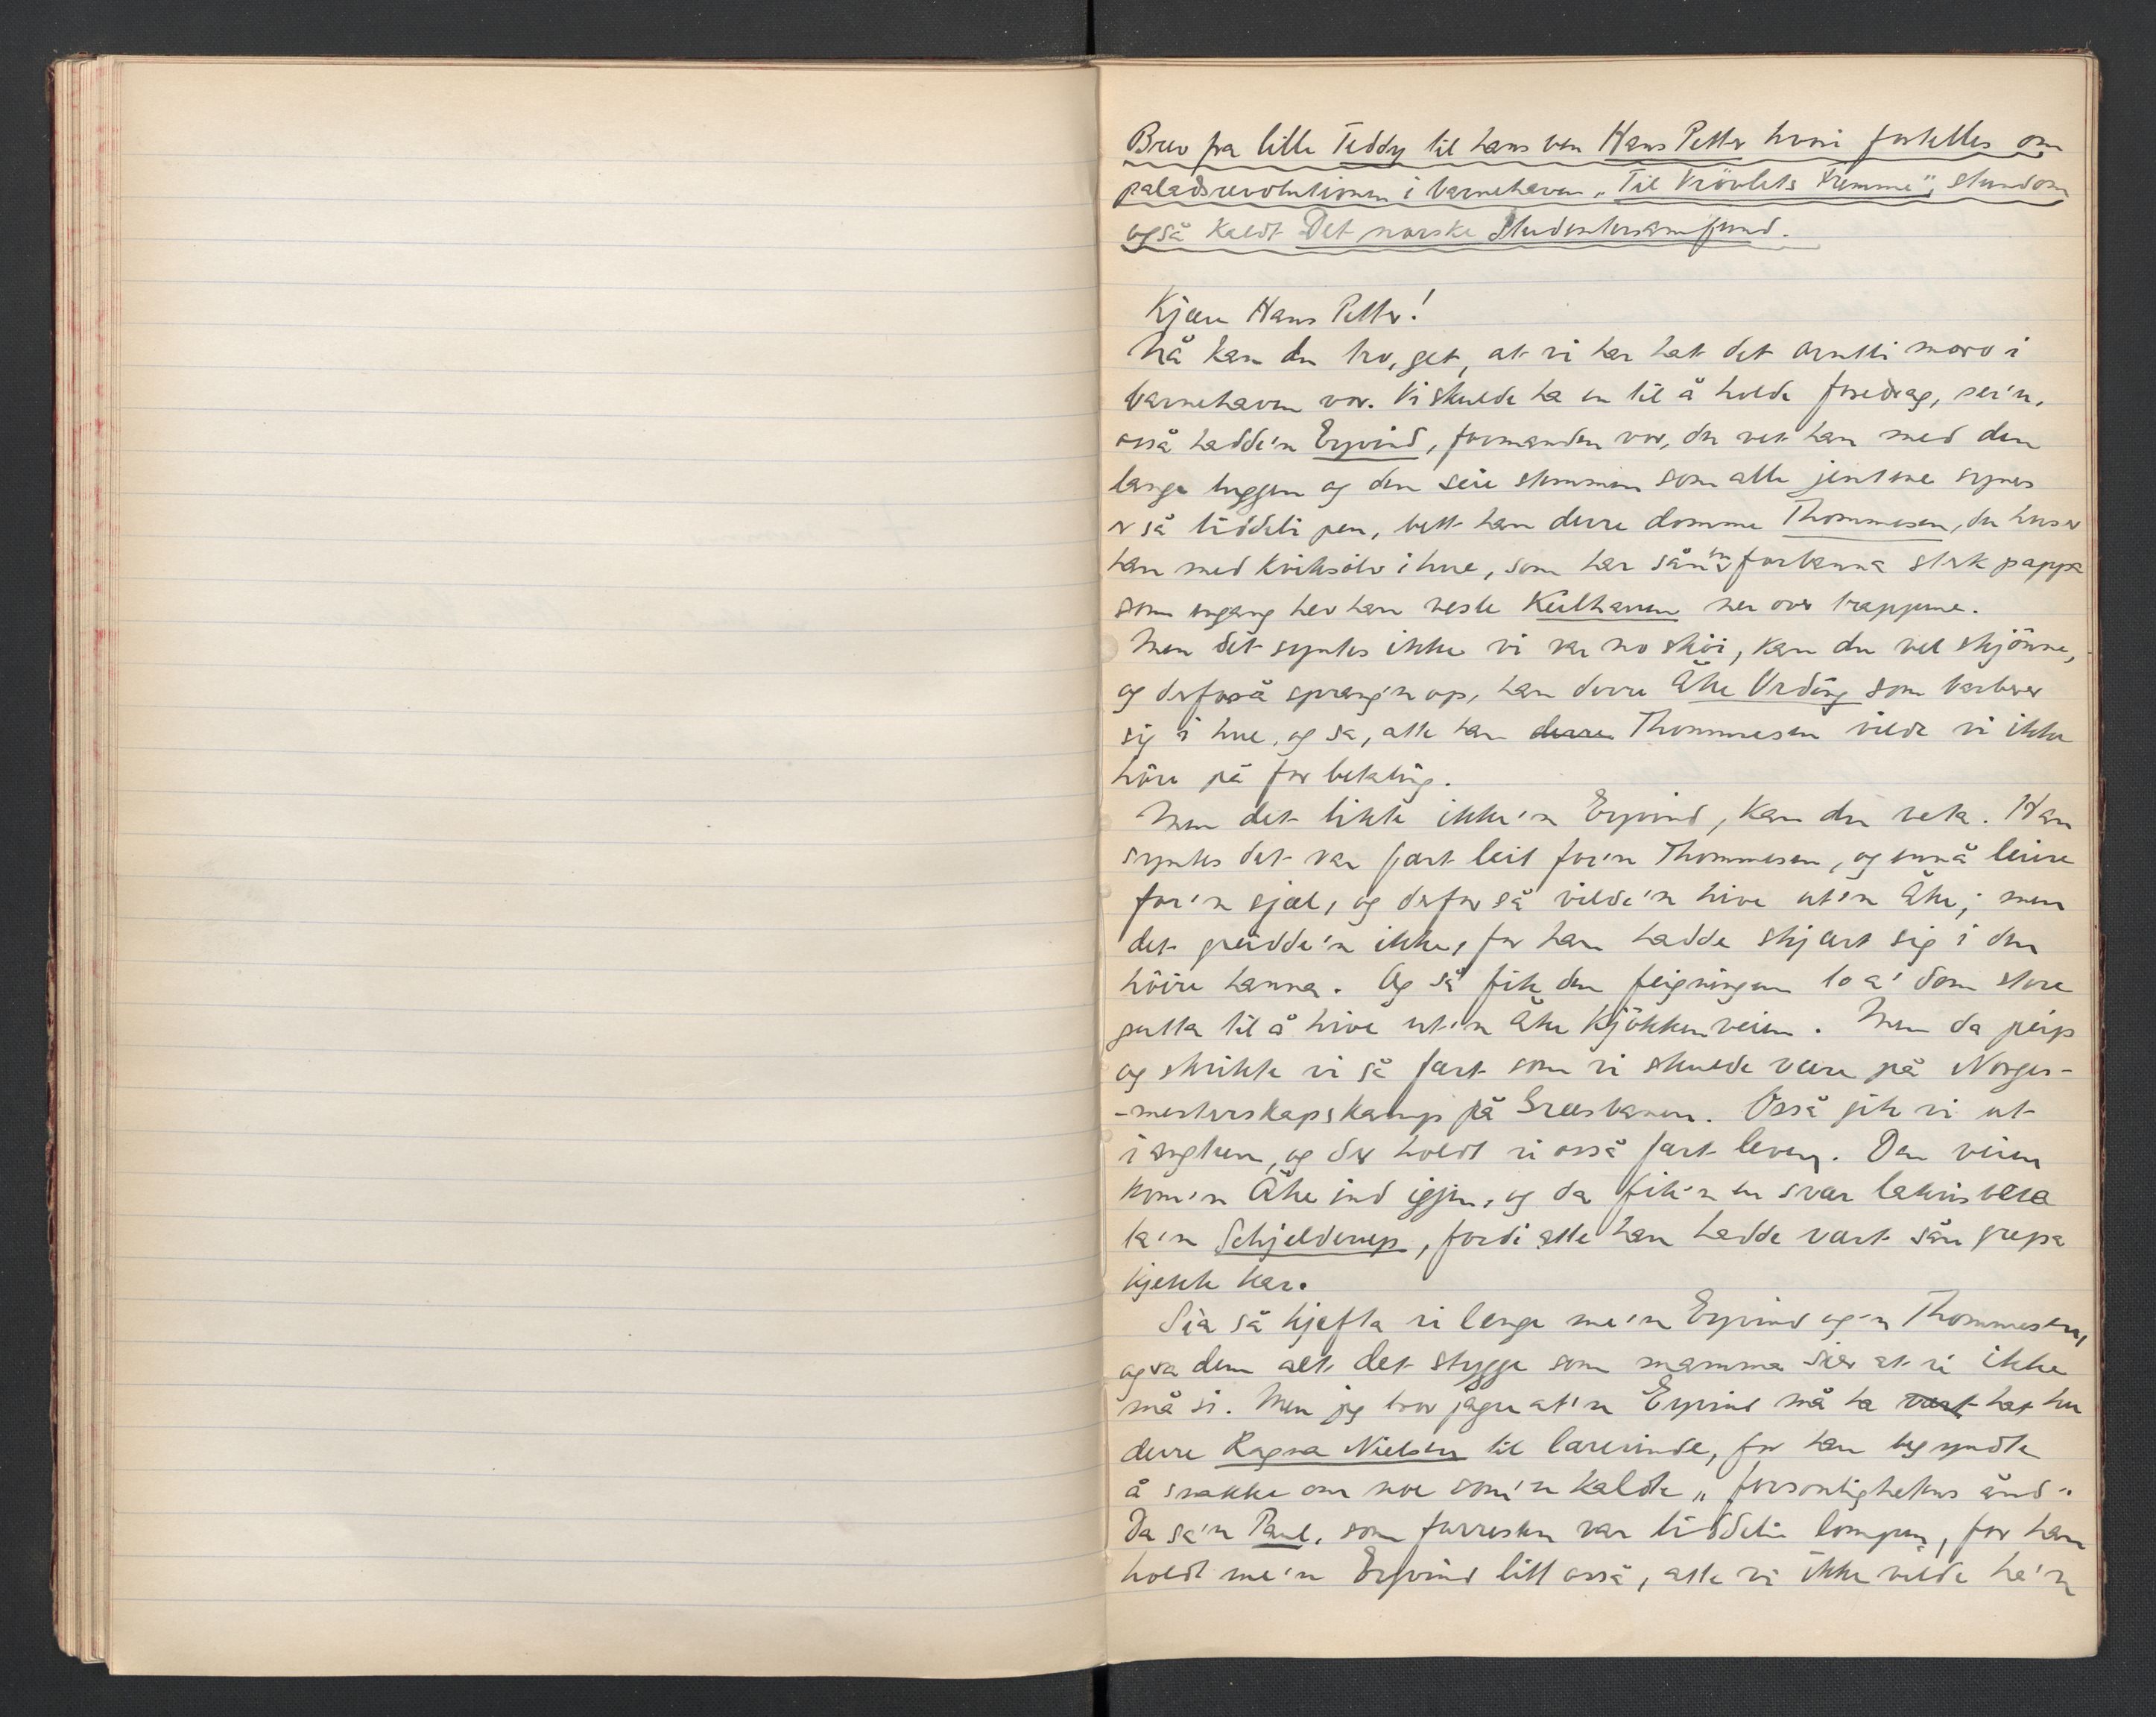 Brev fra lille Teddy til hans ven Hans Petter hvori fortelles om
paladsrevolutionen i barnehaven "Til Vrövlets Fremme", stundom
også kaldt Det norske Studentersamfund.
Kjære Hans Petter!
Nå kan du tro, get, at vi har hat det orntli moro i
barnehaven vor. Vi skulde ha en til å holde foredrag, sei'n,
osså hadde'n Eyvind, formanden vor, du vet han med den
lange luggen og den seie stemmen som alle jentene synes
er så liddeli pen, bett han derre domme Thommesen, du husker
han med kviksølv i hue, som har sån en forbanna sterk pappa
som engang hev han vesle Keilhauen ner over trappene.
Men det syntes ikke vi var no sköi, kan du vel skjönne,
og derforså sprang'n op, han derre Åke Ording som barberer
sig i hue, og sa, atte han derre Thommesen vilde vi ikke
höre på for betaling.
Men det likte ikke'n Eyvind, kan du veta. Han
syntes det var fært leit for'n Thommesen, og ennå leiere
for'n sjæl, og derfor så vilde'n hive ut'n Åke; men
det greidde'n ikke, for han hadde skjært sig i den
höire hanna. Og så fik den feigningen to a' dom store
gutta til å hive ut'n Åke kjökkenveien. Men da peip
og skrikte vi så fært som vi skulde være på Norges-
-mesterskapskamp på Gresbanen. Osså gik vi ut
i ængken, og der holdt vi osså fært leven. Den veien
kom'n Åke ind igjen, og da fik'n en svær lakrisbæta
ta'n Schjelderup, fordi atte han hadde vært sån grepa
kjekk kar.
Sia så kjefta vi lenge me'n Eyvind og'n Thommesen,
og sa dem alt det stygge som mamma sier at vi ikke
må si. Men jeg tror jagu at'n Eyvind må ha vært hat hu
derre Ragna Nielsen til lærerinde, for han begyndte
å snakke om noe som'n kaldte "forsonlighetens ånd".
Da sa'n Paul, som forresten var liddeli lompen, for han
holdt me'n Eyvind litt osså, atte vi ikke vilde ha'n